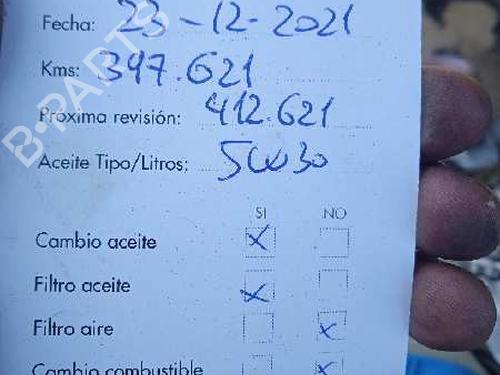 Fecha: 23-12-2021
Kms: 397.621
Próxima revisión: 412.621
Aceite Tipo/Litros: 5W30
SI NO
Cambio aceite X
Filtro aceite X
Filtro aire X
Cambio combustible X
B-PARTS